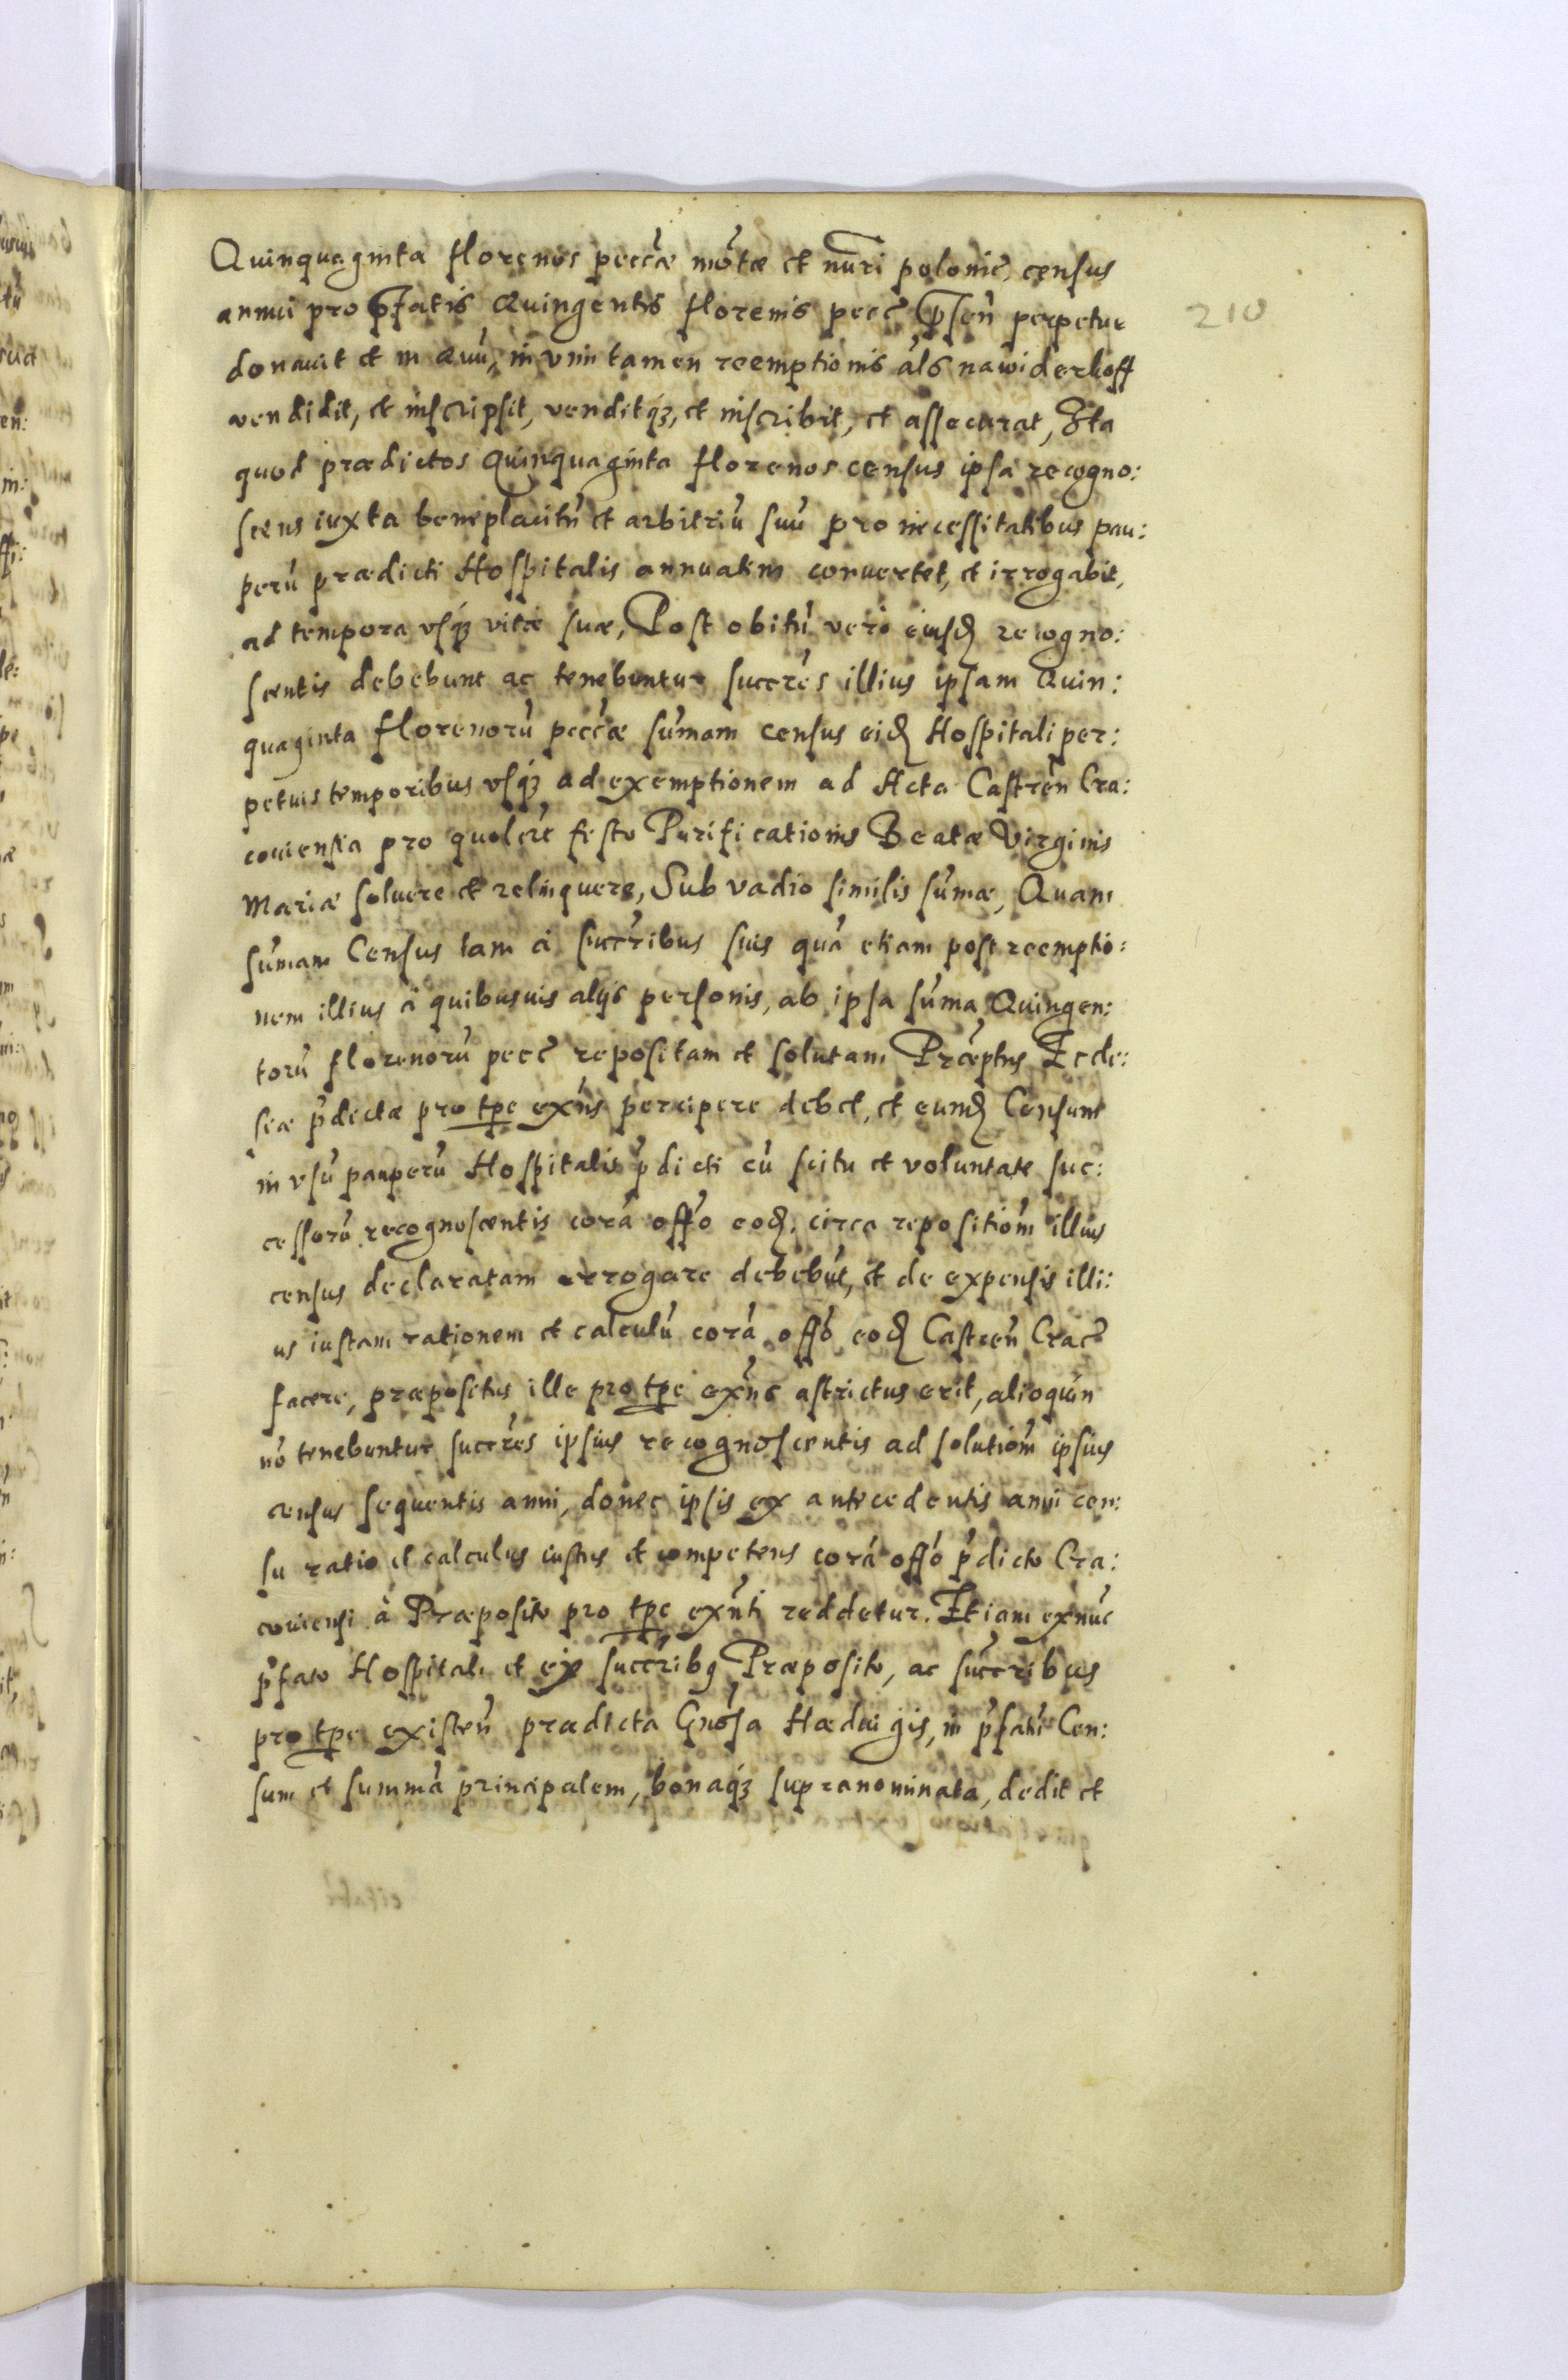 Quinquaginta florenos pecc̃æ mo̅tæ et nu̅ri polonic̃, census
210
annui pro p̃fatis Quingentis florenis pecc̃ p̃sen̅ perpetue
donauit et in æuu̅, in vim tamen reemptionis al̃s nawiderkoff
vendidit, et inscripsit, venditq́ʒ, et inscribit, et assecurat, Ita
quod prædictos Quinquaginta florenos census ipsa recogno:
scens iuxta beneplacitu̅ et arbitriu̅ suu̅ pro necessitatibus pau:
peru̅ prædicti Hospitalis annuatim conuertet, et irrogabit,
ad tempora vsq́ʒ vitæ suæ, Post obitu̅ vero eiusd̨ recogno:
scentis debebunt ac tenebuntur succr̃es illius ipsam Quin:
quaginta florenoru̅ pecc̃æ su̅mam census eid̨ Hospitali per:
petuis temporibus vsq́ʒ ad exemptionem ad Acta Castren̅ Cra:
couiensia pro quolibt̃ festo Purificationis Beatæ Virginis
Mariæ soluere et relinquere, Sub vadio similis su̅mæ, Quam
su̅mam Census tam à succr̃ibus suis qua̅ etiam post reemptio:
nem illius à quibusuis alijs personis, ab ipsa su̅ma Quingen:
toru̅ florenoru̅ pecc̃ repositam et solutam Præptus Eccle:
siæ p̃dictæ pro tp̃e exn̅s percipere debet, et eund̨ Censum
in vsu̅ pauperu̅ Hospitalis p̃dicti cu̅ scitu et voluntate suc:
cessoru̅ recognoscentis cora̅ offo̅ eod̨. circa repositio̅m illius
census declaratam errogare debebu̅t, et de expensis illi:
us iustam rationem et calculu̅ cora̅ offo̅ eod̨ Castren̅ Crac̃
facere, præpositus ille pro tp̃e exn̅s astrictus erit, alioquin
no̅ tenebuntur succr̃es ipsius recognoscentis ad solutio̅m ipsius
census sequentis anni, donec ipsis ex antecedentis anni cen:
su ratio et calculus iustus et competens cora̅ offo̅ p̃dicto Cra:
couiensi à Præposito pro tp̃e exn̅ti reddetur. Etiam exnu̅c
p̃fato Hospitali et eiꝰ succr̃ibꝰ Præposito, ac succr̃ibus
pro tp̃e existen̅ prædicta Gno̅sa Hæduigis, in p̃fatu̅ Cen:
sum et summa̅ principalem, bonaq́ʒ supranominata, dedit et